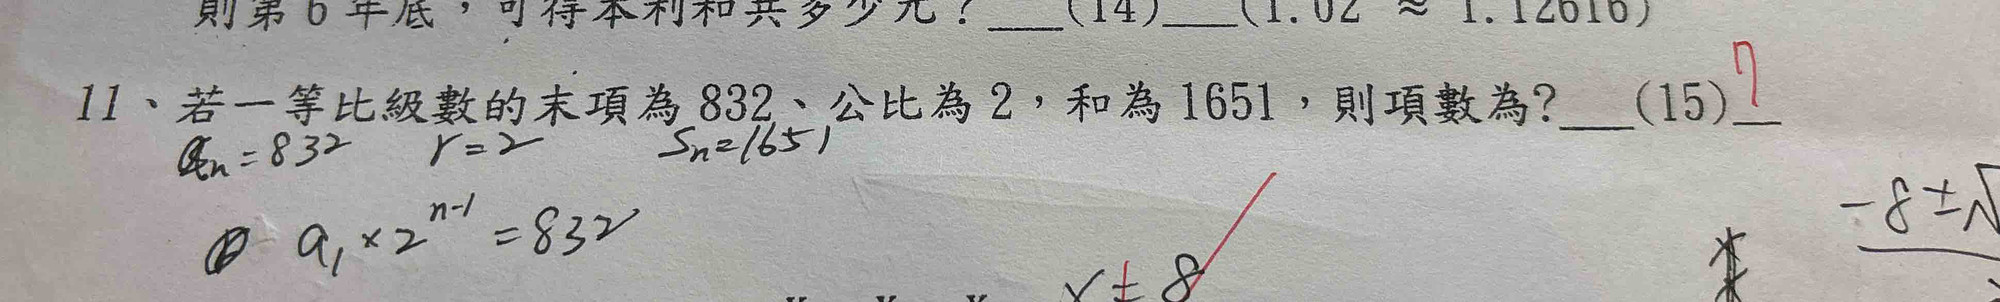 則第 6 年底，可得本利和共多少元？___(14)___(1.02 ≈ 1.12616)
11、若一等比級數的末項為 832、公比為 2，和為 1651，則項數為?___(15)__ 7
an=832 r=2 Sn=1651
a₁×2ⁿ⁻¹=832
-8±√
x± 8